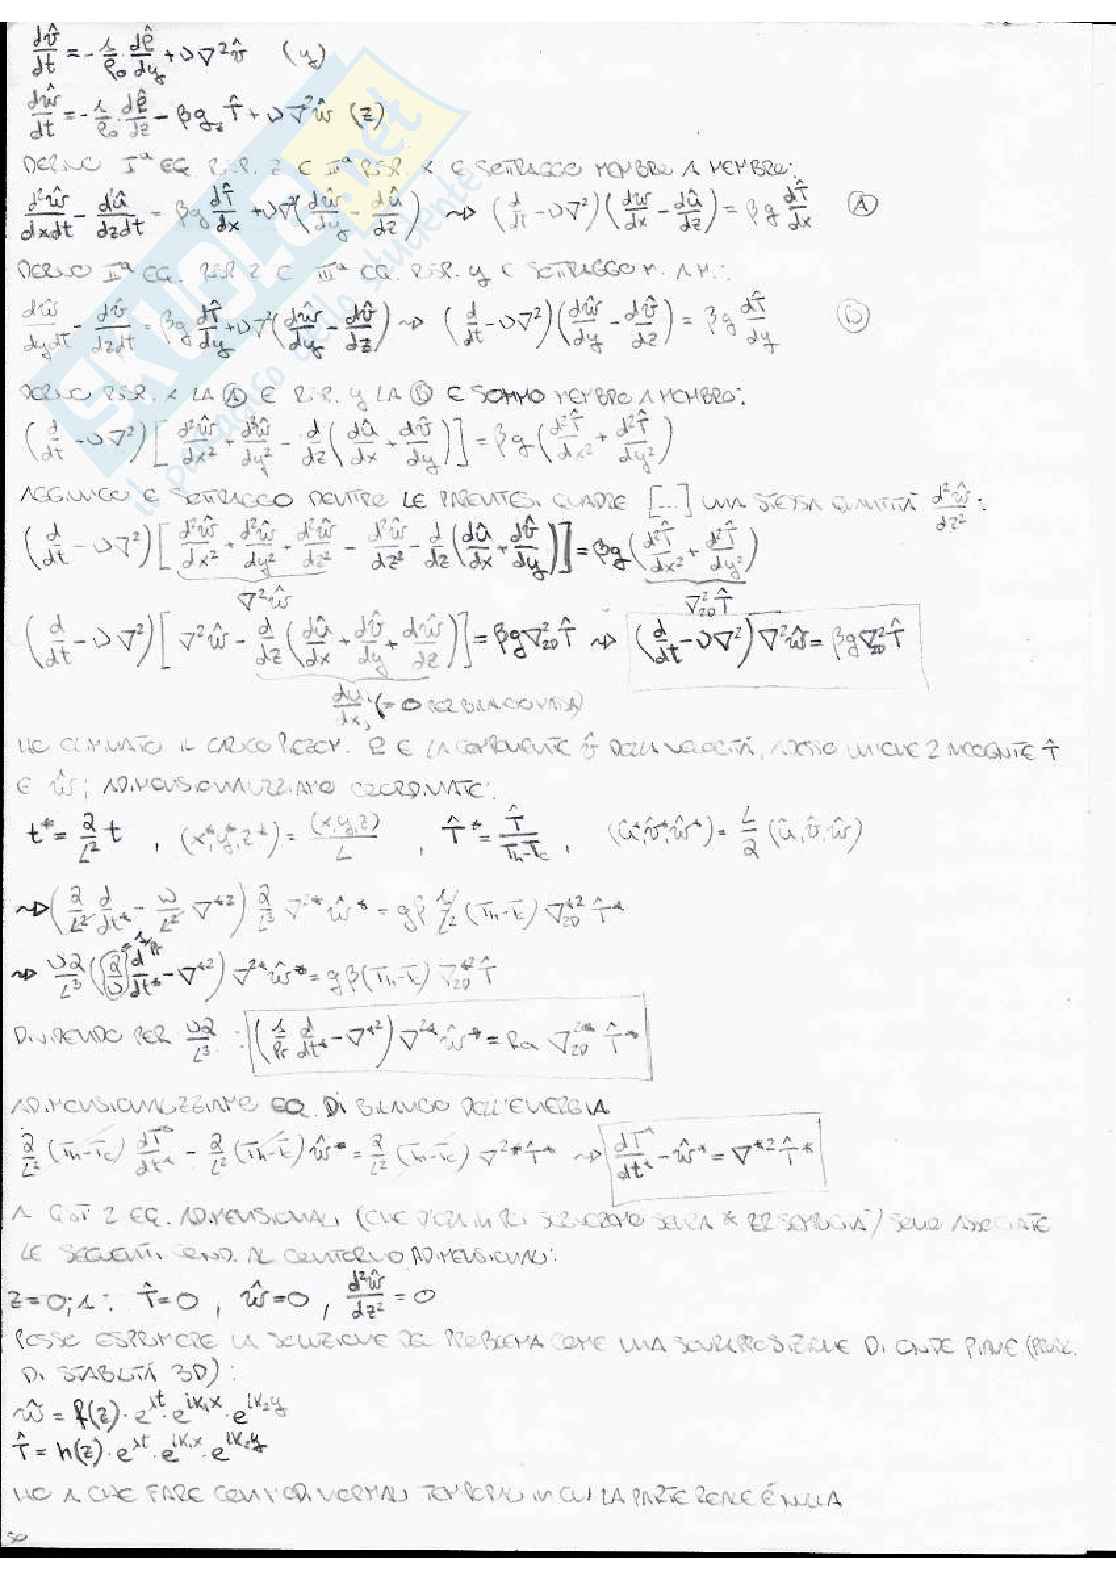 dv̂/dt = -1/ρ₀ · dP̂/dy + ν∇²v̂ (y)
dŵ/dt = -1/ρ₀ · dP̂/dz - βg T̂ + ν∇²ŵ (z)
DERIVO Iª EQ. RISP. Z E IIª RISP. X E SOTTRAGGO MEMBRO A MEMBRO:
d²ŵ/dxdt - d²û/dzdt = βg dT̂/dx + ν∇²(dŵ/dy - dû/dz) ⇝ (d/dt - ν∇²)(dŵ/dx - dû/dz) = βg dT̂/dx (A)
DERIVO IIª EQ. RISP. Z E IIIª EQ. RISP. y E SOTTRAGGO M. A M.:
d²ŵ/dydt - d²v̂/dzdt = βg dT̂/dy + ν∇²(dŵ/dy - dv̂/dz) ⇝ (d/dt - ν∇²)(dŵ/dy - dv̂/dz) = βg dT̂/dy (B)
DERIVO RISP. X LA (A) E RISP. y LA (B) E SOMMO MEMBRO A MEMBRO:
(d/dt - ν∇²)[d²ŵ/dx² + d²ŵ/dy² - d/dz(dû/dx + dv̂/dy)] = βg(d²T̂/dx² + d²T̂/dy²)
AGGIUNGO E SOTTRAGGO DENTRO LE PARENTESI QUADRE [...] UNA STESSA QUANTITÁ d²ŵ/dz²:
(d/dt - ν∇²)[d²ŵ/dx² + d²ŵ/dy² + d²ŵ/dz² - d²ŵ/dz² - d/dz(dû/dx + dv̂/dy)] = βg(d²T̂/dx² + d²T̂/dy²)
∇²ŵ ∇²₂D T̂
(d/dt - ν∇²)[∇²ŵ - d/dz(dû/dx + dv̂/dy + dŵ/dz)] = βg∇²₂D T̂ ⇝ (d/dt - ν∇²)∇²ŵ = βg∇²₂D T̂
dûⱼ/dxⱼ (=0 PER BILANCIO MASSA)
HO ELIMINATO IL CARICO PIEZOM. P̂ E LA COMPONENTE v̂ DELLA VELOCITÁ, ADESSO UNICHE 2 INCOGNITE T̂
E ŵ; ADIMENSIONALIZZIAMO COORDINATE:
t* = α/L² t , (x*,y*,z*) = (x,y,z)/L , T̂* = T̂/(Th-Tc) , (û*,v̂*,ŵ*) = L/α (û,v̂,ŵ)
⇝ (α/L² d/dt* - ν/L² ∇*²) α/L³ ∇²*ŵ* = gβ 1/L² (Th-Tc) ∇*²₂D T̂*
⇝ να/L³ ((α/ν) d/dt* - ∇*²) ∇²*ŵ* = gβ(Th-Tc) ∇*²₂D T̂
1/Pr
DIVIDENDO PER να/L³ : (1/Pr d/dt* - ∇*²) ∇²*ŵ* = Ra ∇²*₂D T̂*
ADIMENSIONALIZZIAMO EQ. DI BILANCIO DELL'ENERGIA
α/L² (Th-Tc) dT̂*/dt* - α/L² (Th-Tc) ŵ* = α/L² (Th-Tc) ∇²*T̂* ⇝ dT̂*/dt* - ŵ* = ∇*²T̂*
A QST 2 EQ. ADIMENSIONALI (CHE D'ORA IN POI SCRIVEREMO SENZA * PER SEMPLICITÁ) SONO ASSOCIATE
LE SEGUENTI COND. AL CONTORNO ADIMENSIONALI:
z=0;1: T̂=0 , ŵ=0 , d²ŵ/dz² = 0
POSSO ESPRIMERE LA SOLUZIONE DEL PROBLEMA COME UNA SOVRAPPOSIZIONE DI ONDE PIANE (PROBL.
DI STABILITÁ 3D):
ŵ = f(z)·e^λt·e^ik₁x·e^ik₂y
T̂ = h(z)·e^λt·e^ik₁x·e^ik₂y
HO A CHE FARE CON MODI NORMALI TEMPORALI IN CUI LA PARTE REALE É NULLA
50
SKUOLA.net
il paradiso dello studente